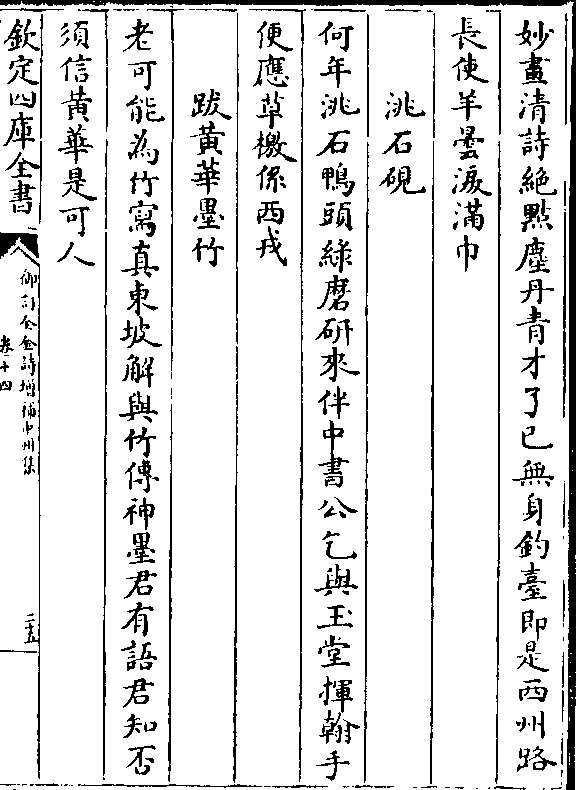 妙畫清詩絶點塵丹青才了已無身釣臺即是西州路
長使羊曇淚滿巾
洮石硯
何年洮石鴨頭緑磨研來伴中書公乞與玉堂揮翰手
便應草檄係西戎
跋黄華墨竹
老可能為竹寫真東坡解與竹傳神墨君有語君知否
須信黄華是可人
欽定四庫全書
御訂全金詩増補中州集
卷十四
二十五